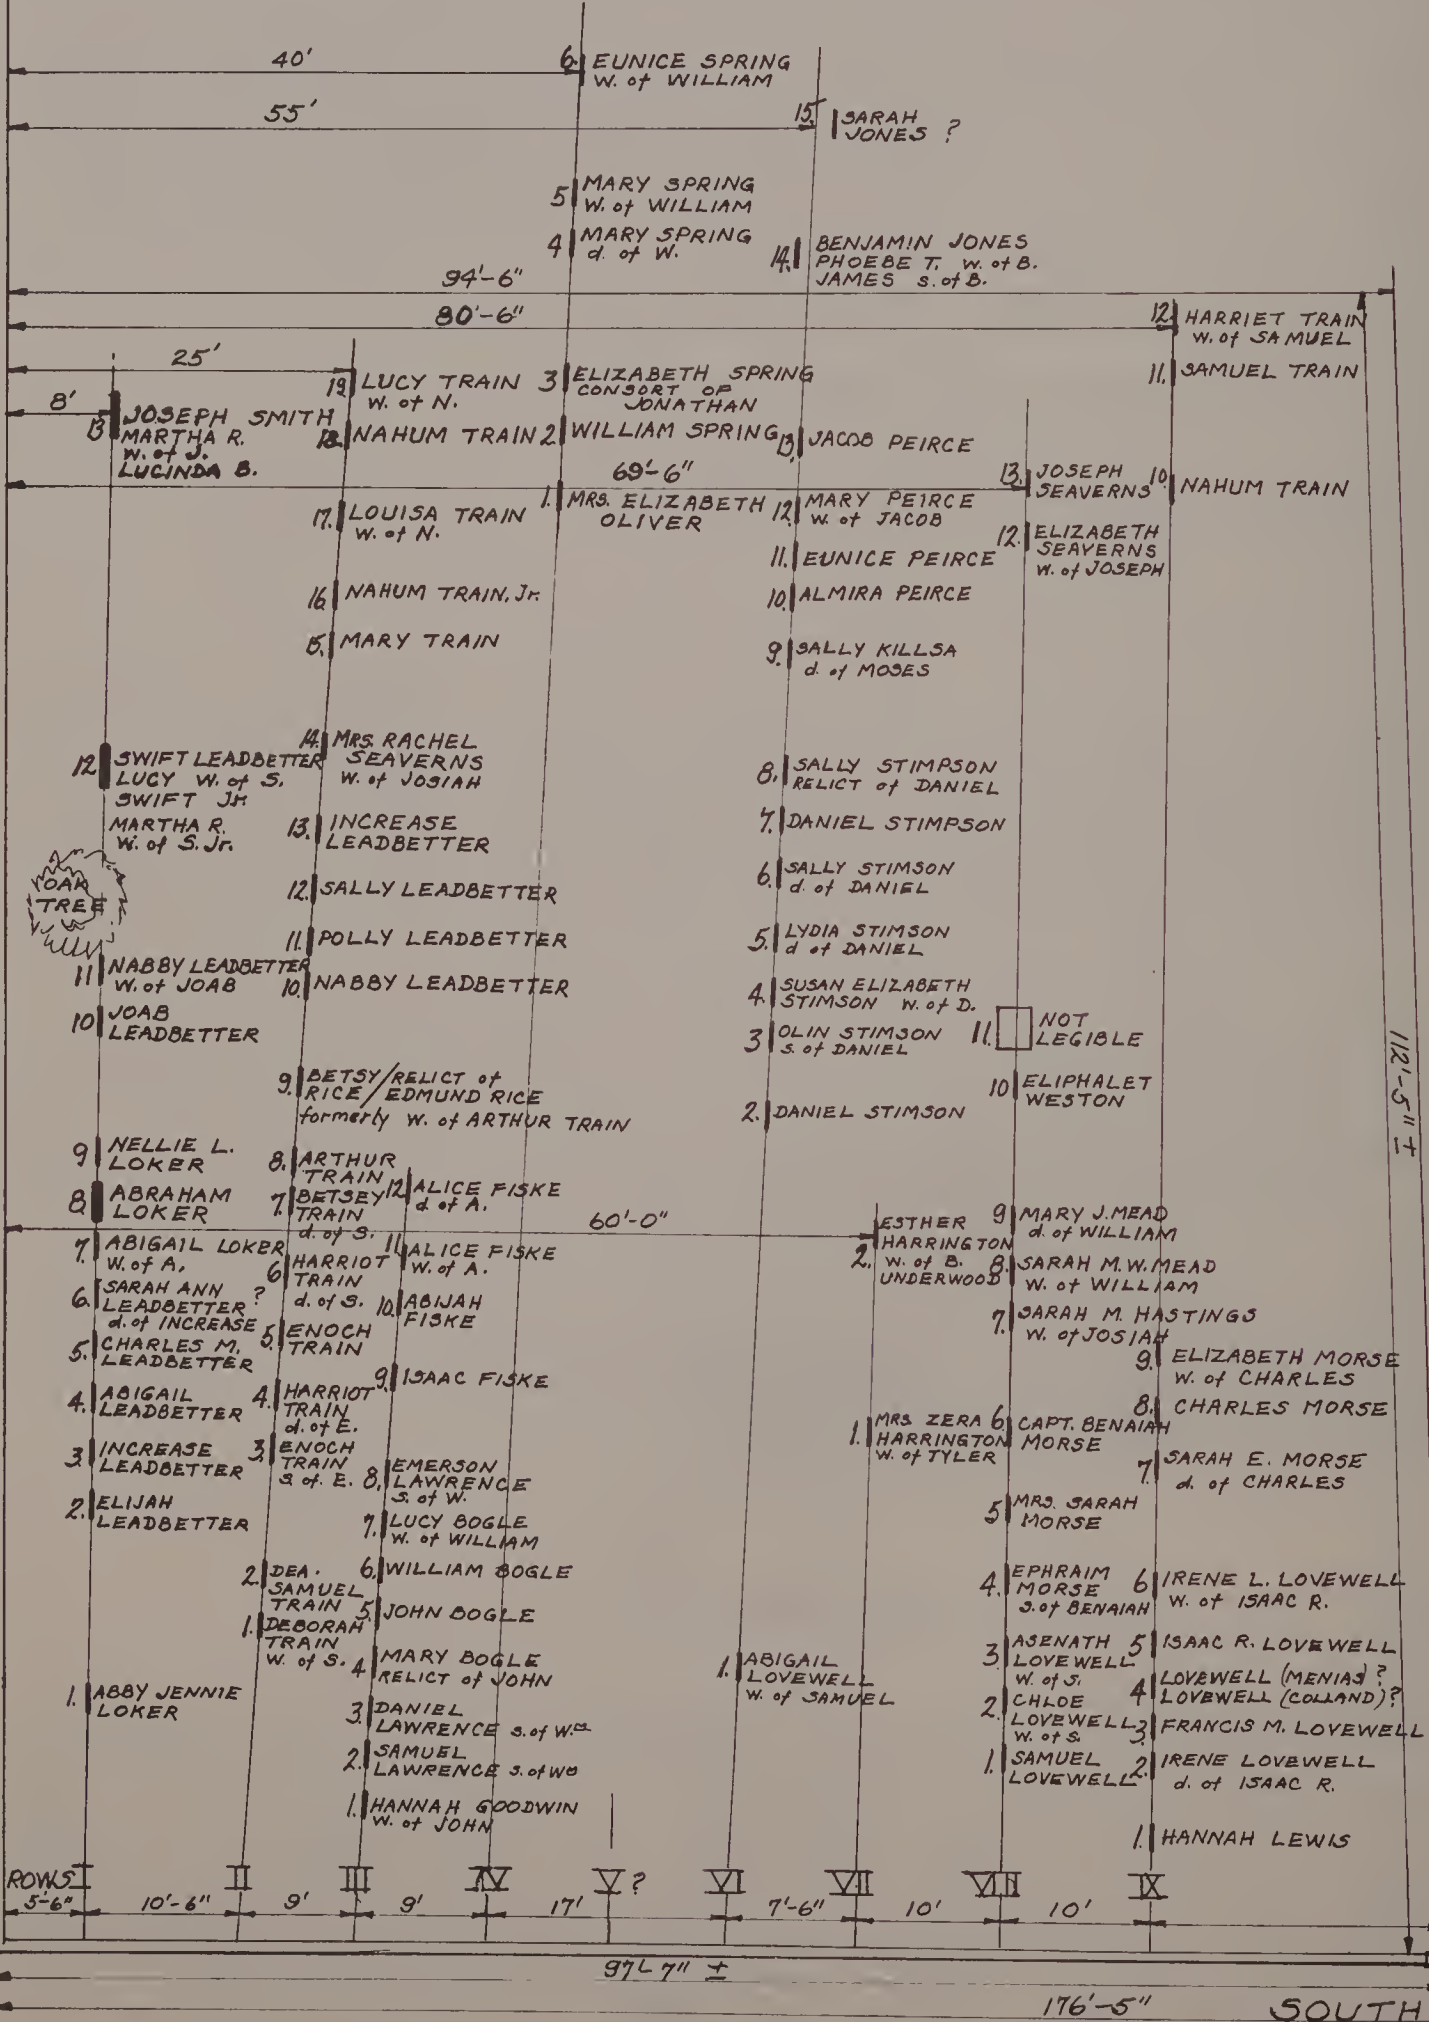 40'
6. EUNICE SPRING
W. of WILLIAM
55'
15. SARAH
JONES ?
5 MARY SPRING
W. of WILLIAM
4 MARY SPRING
d. of W.
14. BENJAMIN JONES
PHOEBE T. W. of B.
JAMES S. of B.
94'-6"
80'-6"
12. HARRIET TRAIN
W. of SAMUEL
25'
19. LUCY TRAIN
W. of N.
3 ELIZABETH SPRING
CONSORT OF
JONATHAN
11. SAMUEL TRAIN
8'
13 JOSEPH SMITH
MARTHA R.
W. of J.
LUCINDA B.
18. NAHUM TRAIN
2. WILLIAM SPRING
13. JACOB PEIRCE
69'-6"
13. JOSEPH
SEAVERNS
10. NAHUM TRAIN
17. LOUISA TRAIN
W. of N.
1. MRS. ELIZABETH
OLIVER
12. MARY PEIRCE
W. of JACOB
12. ELIZABETH
SEAVERNS
W. of JOSEPH
11. EUNICE PEIRCE
16. NAHUM TRAIN, Jr.
10. ALMIRA PEIRCE
15. MARY TRAIN
9. SALLY KILLSA
d. of MOSES
14. MRS. RACHEL
SEAVERNS
W. of JOSIAH
12 SWIFT LEADBETTER
LUCY W. of S.
SWIFT Jr.
MARTHA R.
W. of S. Jr.
8. SALLY STIMPSON
RELICT of DANIEL
13. INCREASE
LEADBETTER
7. DANIEL STIMPSON
OAK
TREE
12. SALLY LEADBETTER
6. SALLY STIMSON
d. of DANIEL
11. POLLY LEADBETTER
5. LYDIA STIMSON
d of DANIEL
11 NABBY LEADBETTER
W. of JOAB
10. NABBY LEADBETTER
4. SUSAN ELIZABETH
STIMSON W. of D.
10 JOAB
LEADBETTER
3 OLIN STIMSON
S. of DANIEL
11. NOT
LEGIBLE
112'-5" ±
9. BETSY/RELICT of
RICE/EDMUND RICE
formerly W. of ARTHUR TRAIN
10 ELIPHALET
WESTON
2. DANIEL STIMSON
9 NELLIE L.
LOKER
8. ARTHUR
TRAIN
8. ABRAHAM
LOKER
7. BETSEY
TRAIN
d. of S.
12 ALICE FISKE
d. of A.
60'-0"
2. ESTHER
HARRINGTON
W. of B.
UNDERWOOD
9 MARY J. MEAD
d. of WILLIAM
7. ABIGAIL LOKER
W. of A.
6 HARRIOT
TRAIN
d. of S.
11 ALICE FISKE
W. of A.
8. SARAH M. W. MEAD
W. of WILLIAM
6. SARAH ANN
LEADBETTER ?
d. of INCREASE
10. ABIJAH
FISKE
7. SARAH M. HASTINGS
W. of JOSIAH
5. CHARLES M.
LEADBETTER
5. ENOCH
TRAIN
9. ISAAC FISKE
9. ELIZABETH MORSE
W. of CHARLES
4. ABIGAIL
LEADBETTER
4. HARRIOT
TRAIN
d. of E.
8. CHARLES MORSE
1. MRS. ZERA
HARRINGTON
W. of TYLER
6. CAPT. BENAIAH
MORSE
3. INCREASE
LEADBETTER
3. ENOCH
TRAIN
S. of E.
8. EMERSON
LAWRENCE
S. of W.
7. SARAH E. MORSE
d. of CHARLES
2. ELIJAH
LEADBETTER
7. LUCY BOGLE
W. of WILLIAM
5 MRS. SARAH
MORSE
2. DEA.
SAMUEL
TRAIN
6. WILLIAM BOGLE
4. EPHRAIM
MORSE
S. of BENAIAH
6 IRENE L. LOVEWELL
W. of ISAAC R.
1. DEBORAH
TRAIN
W. of S.
5. JOHN BOGLE
3 ASENATH
LOVEWELL
W. of S.
5 ISAAC R. LOVEWELL
4 MARY BOGLE
RELICT of JOHN
1. ABIGAIL
LOVEWELL
W. of SAMUEL
4 LOVEWELL (MENIAS) ?
LOVEWELL (COLLAND) ?
1. ABBY JENNIE
LOKER
3. DANIEL
LAWRENCE S. of Wm
2. CHLOE
LOVEWELL
W. of S.
3 FRANCIS M. LOVEWELL
2. SAMUEL
LAWRENCE S. of Wm
1. SAMUEL
LOVEWELL
2. IRENE LOVEWELL
d. of ISAAC R.
1. HANNAH GOODWIN
W. of JOHN
1. HANNAH LEWIS
ROWS I II III IV V ? VI VII VIII IX
5'-6" 10'-6" 9' 9' 17' 7'-6" 10' 10'
97'-7" ±
176'-5" SOUTH